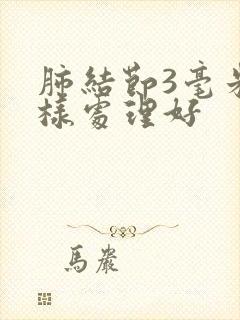 肺結節3毫米
樣處理好
馬巖